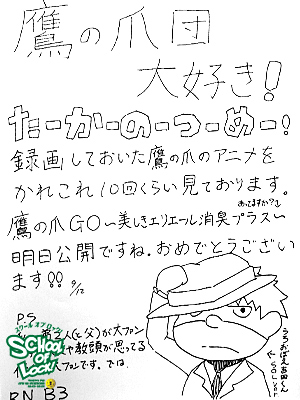 鷹の爪団
大好き！
たーかーのーつーめー！
録画しておいた鷹の爪のアニメを
かれこれ10回くらい見ております。
あってますか？
鷹の爪GO～美しきエリエール消臭プラス～
明日公開ですね。おめでとうござい
ます!! 9/12
P.S
人(と父)が大ファン
や教頭が思ってる
大ファンです。では、
RN B3
スクール オブ ロック
SCHOOL
OF
LOCK!
うろおぼえ吉田くん